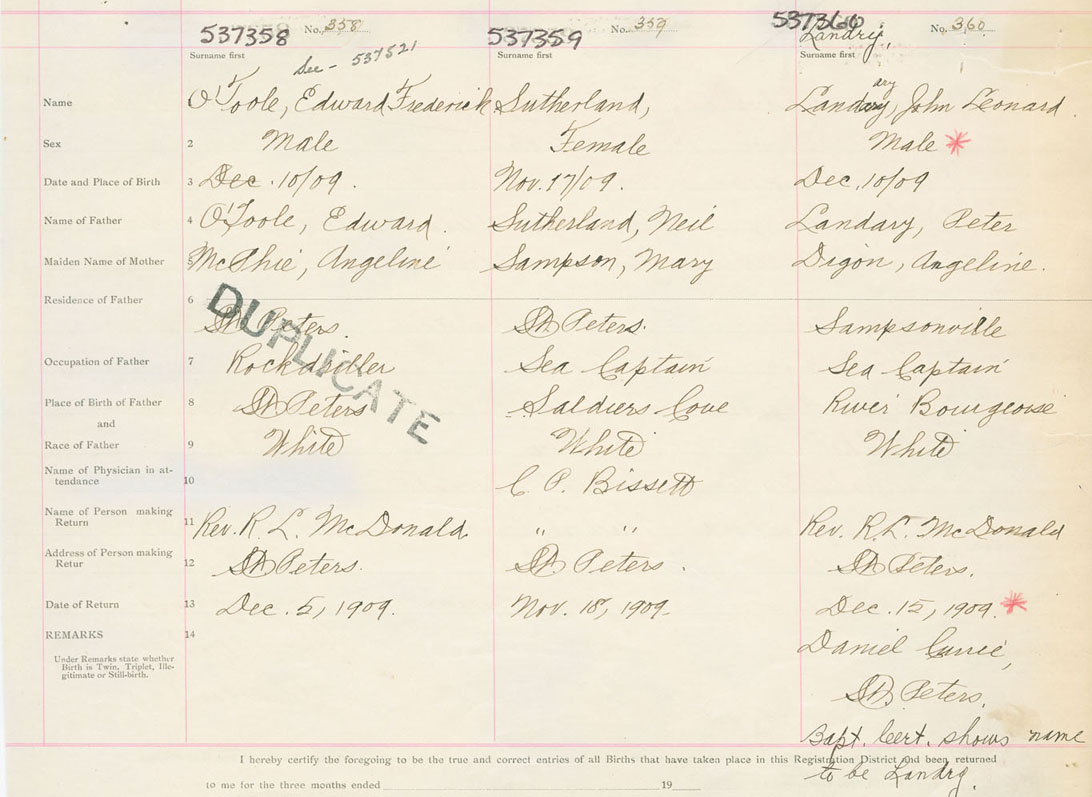 537358 No. 358 537359 No. 359 537360 No. 360
Landry,
Surname first Surname first Surname first
Dec - 537521
ary
Name O'Toole, Edward Frederick Sutherland, Landary, John Leonard.
Sex 2 Male Female Male *
Date and Place of Birth 3 Dec. 10/09. Nov. 17/09. Dec, 10/09
Name of Father 4 O'Toole, Edward. Sutherland, Neil Landary, Peter
Maiden Name of Mother 5 McPhie, Angeline Sampson, Mary Digon, Angeline.
Residence of Father 6
St Peters. St Peters. Sampsonville
DUPLICATE
Occupation of Father 7 Rockdriller Sea Captain Sea Captain
Place of Birth of Father 8 St Peters Saldiers Cove River Bourgeoise
and
Race of Father 9 White White White
Name of Physician in at-
tendance 10 C. P. Bissett
Name of Person making
Return 11 Rev. R. L. McDonald " " Rev. R. L. McDonald
Address of Person making
Retur 12 St Peters. St Peters. St Peters.
Date of Return 13 Dec. 5, 1909. Nov. 18, 1909. Dec. 15, 1909. *
REMARKS 14
Daniel Currie,
Under Remarks state whether
Birth is Twin, Triplet, Ille-
gitimate or Still-birth.
St. Peters.
Bapt. Cert. shows name
to be Landry.
I hereby certify the foregoing to be the true and correct entries of all Births that have taken place in this Registration District and been returned
to me for the three months ended 19